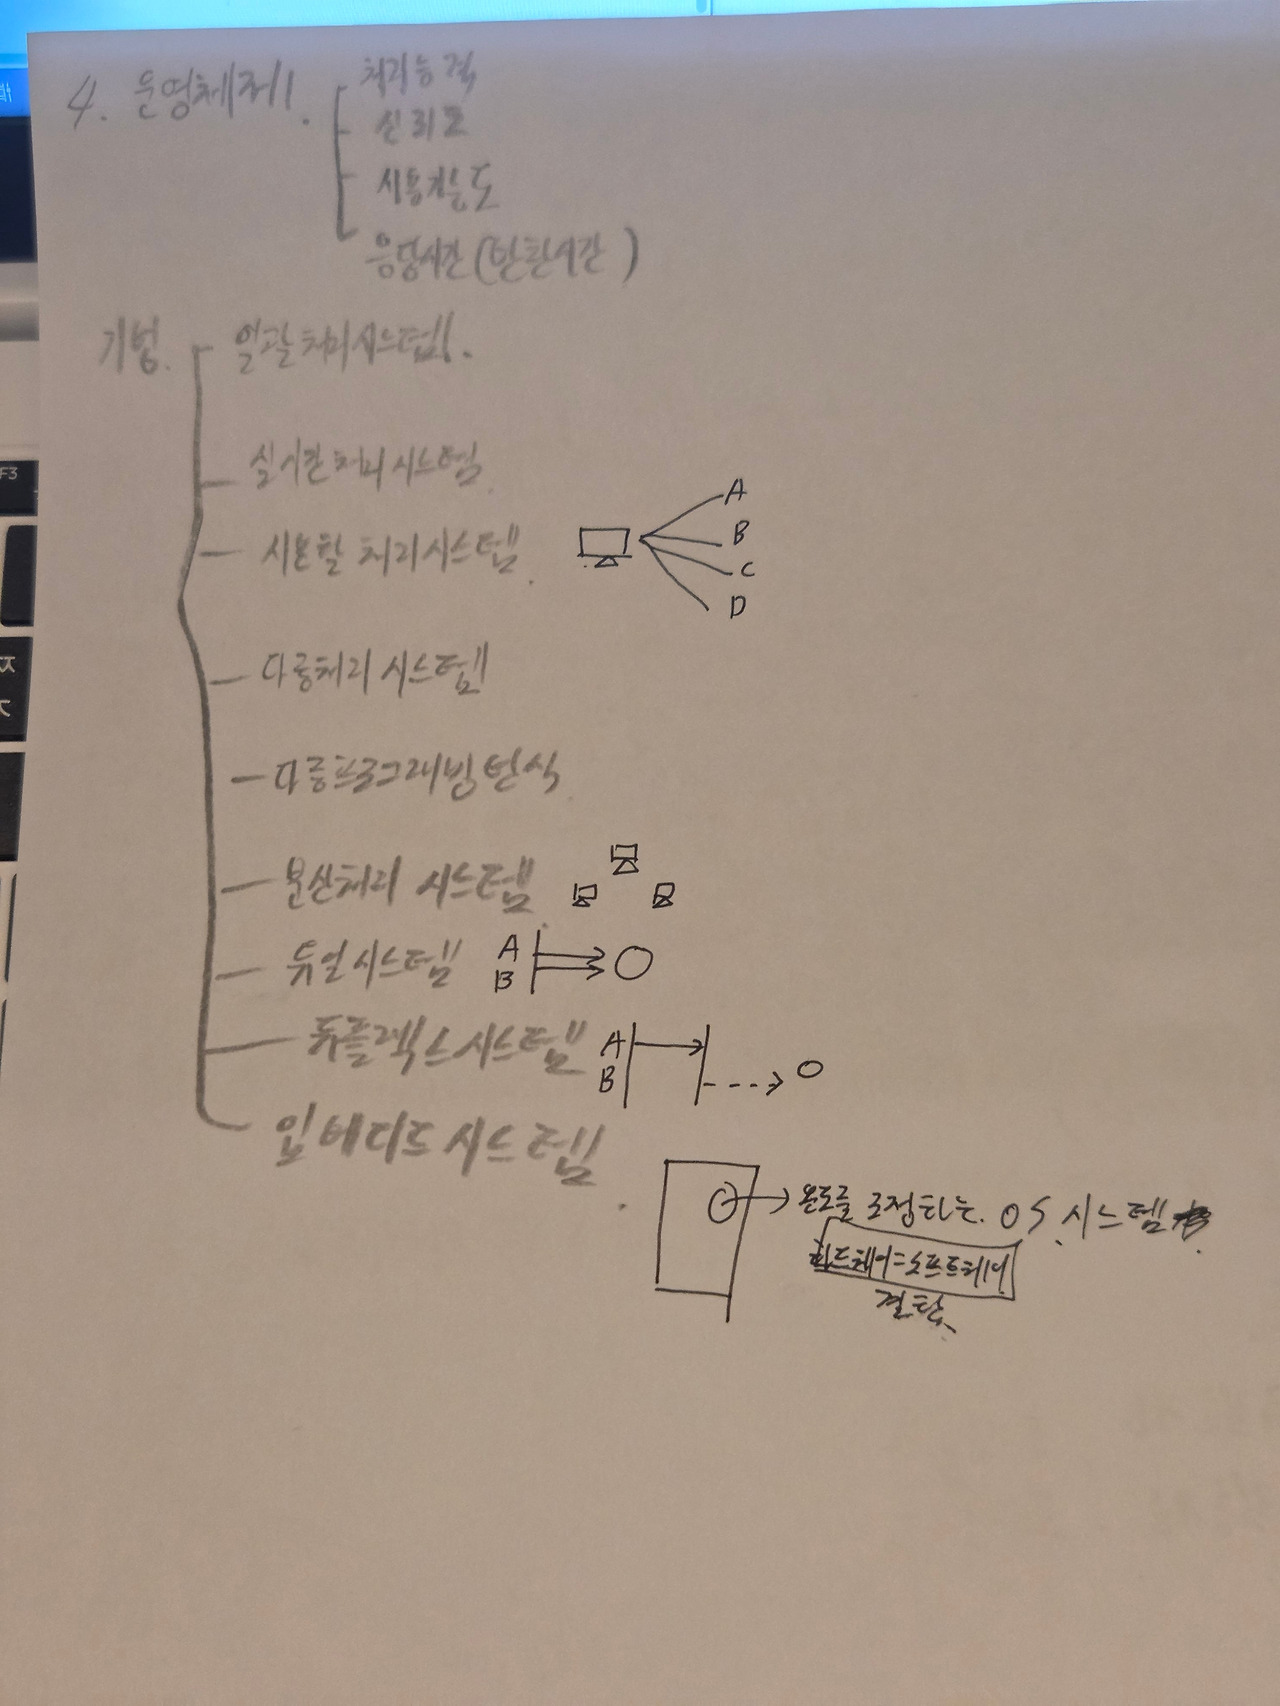 4. 운영체제.
처리능력
신뢰도
사용가능도
응답시간 (반환시간)
기법.
일괄처리시스템.
실시간처리시스템.
시분할 처리시스템.
A
B
C
D
다중처리 시스템
다중프로그래밍방식.
분산처리 시스템.
듀얼시스템
A
B
듀플렉스시스템
A
B
임베디드시스템.
온도를 조절하는. OS 시스템
하드웨어=소프트웨어
결합.
F3
ㅈ